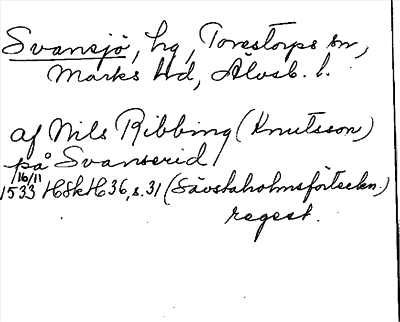 Svansjö, hg, Torestorps sn,
Marks hd, Älvsb. l.
af Nils Ribbing (Knutsson)
på Svanserid
1533 16/11 HSkH 36, s. 31 (Sävstaholmsförteckn.)
regest.